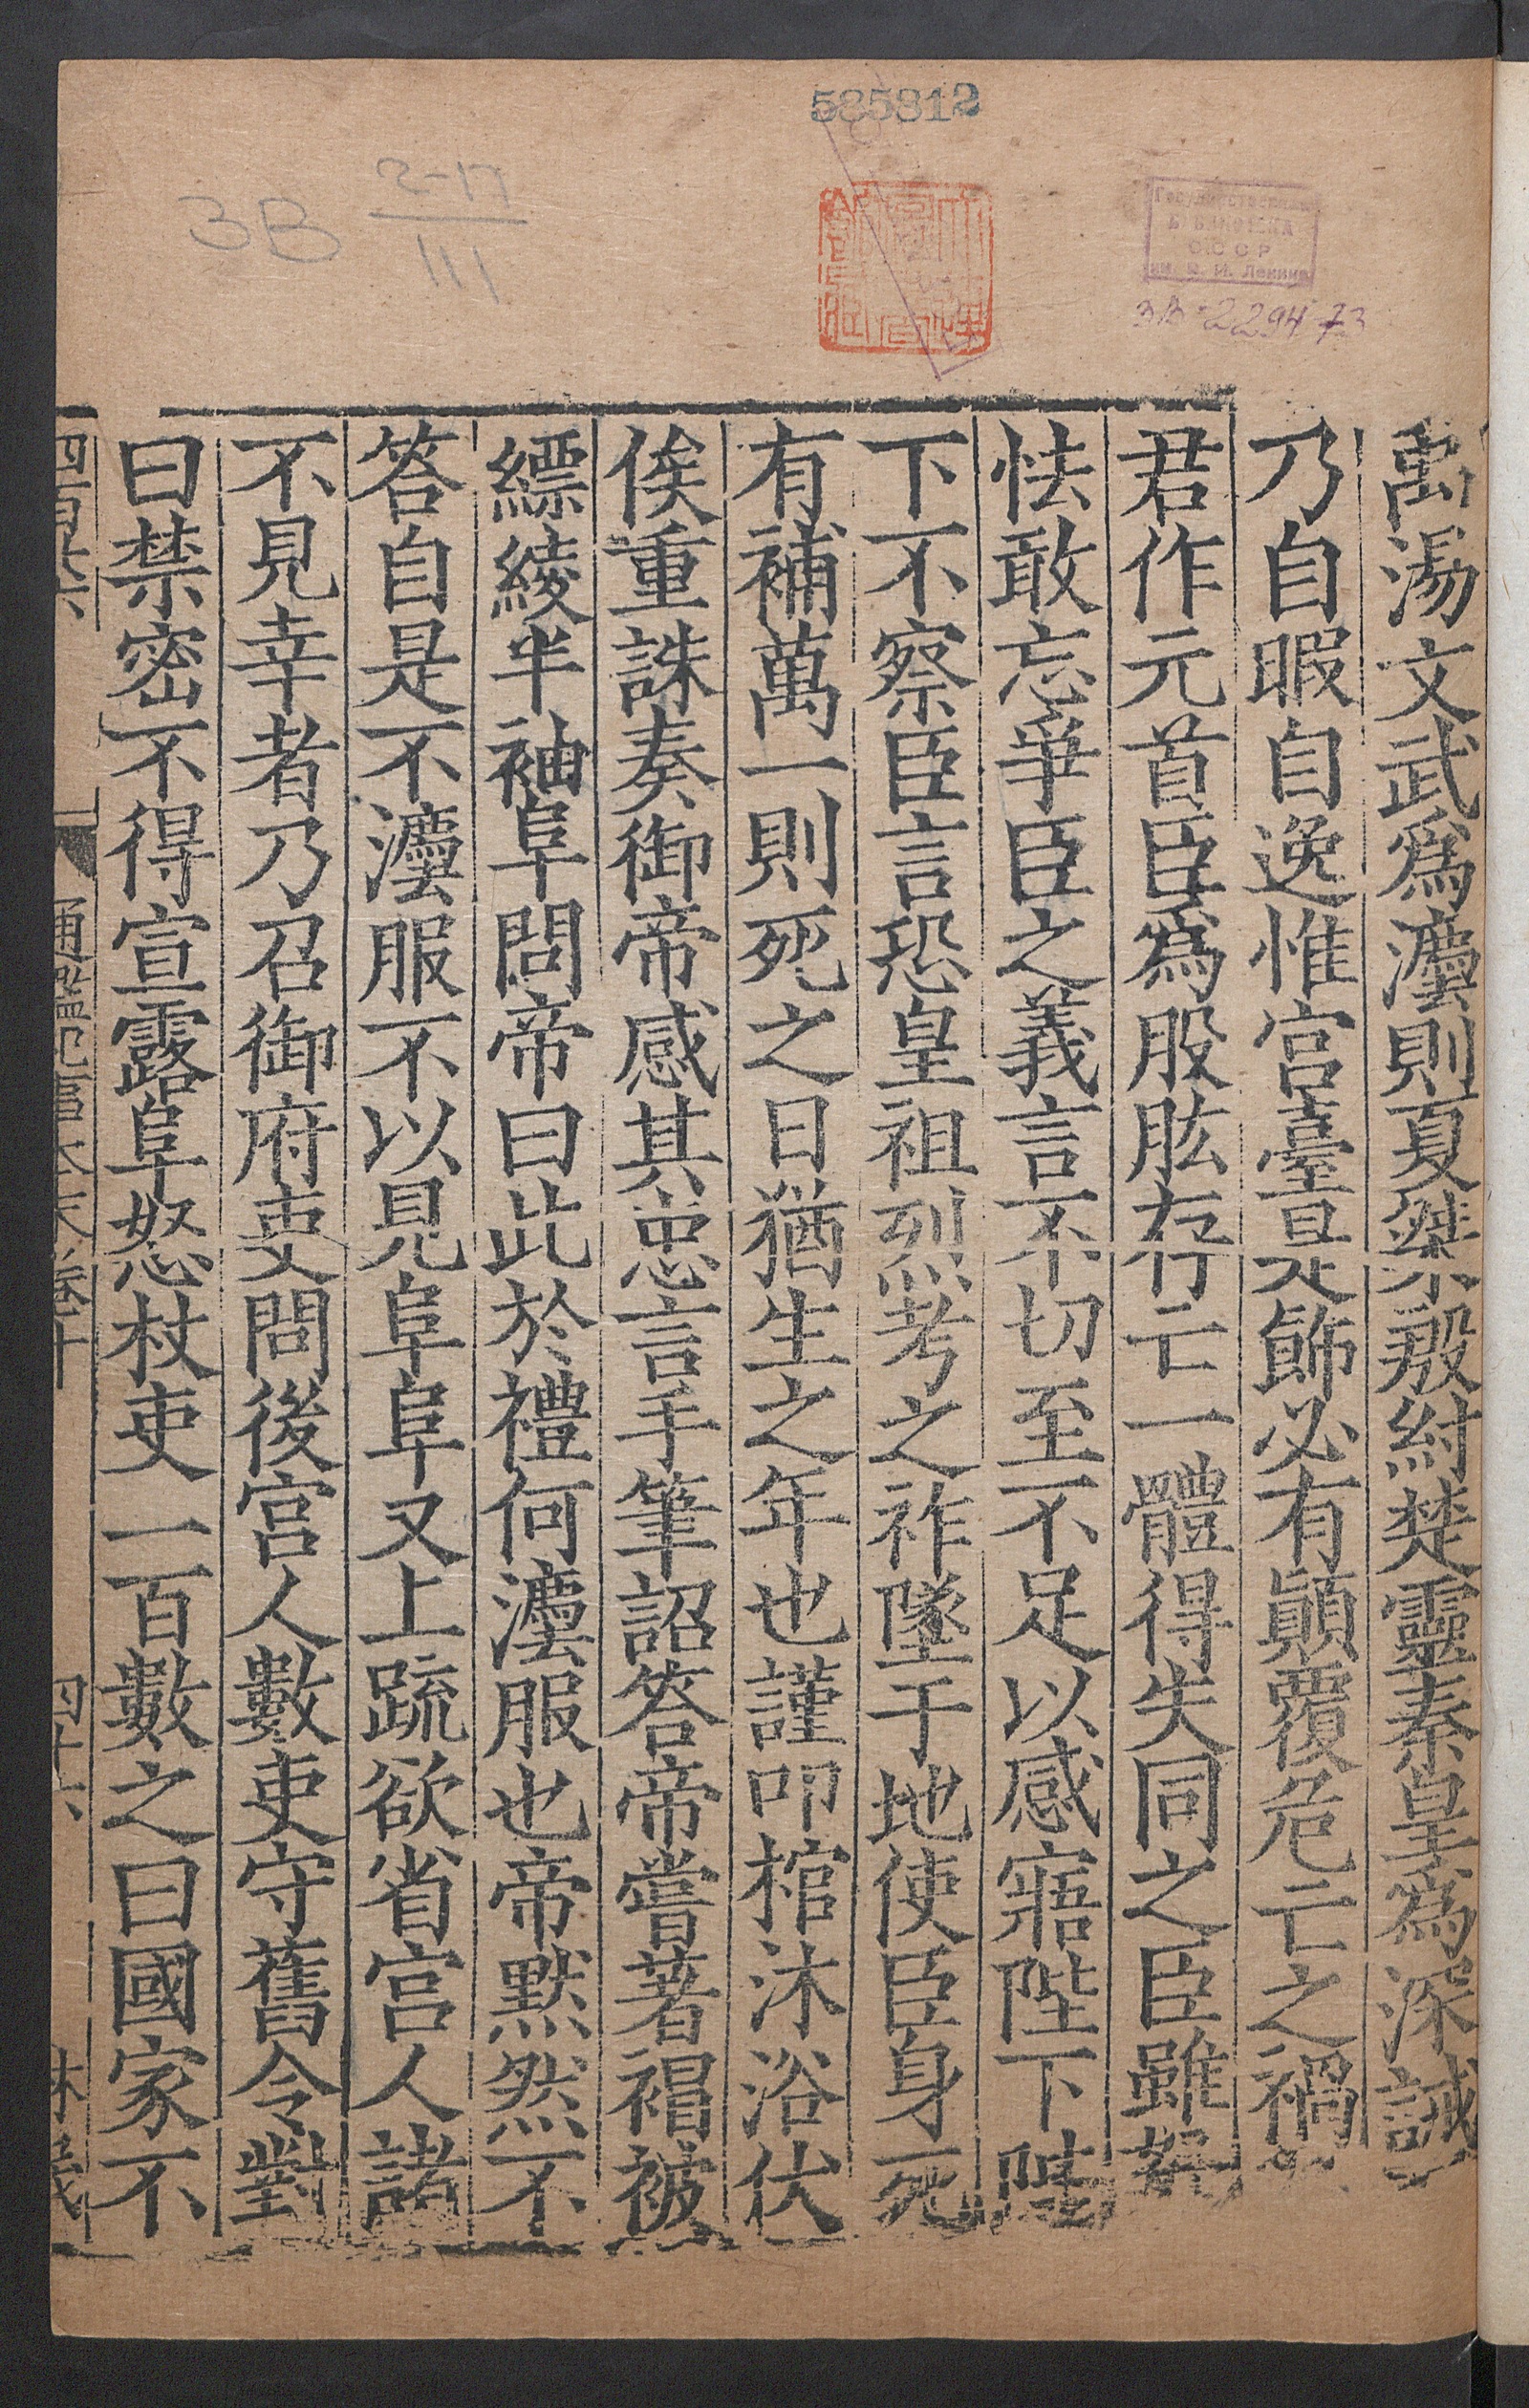 585812
3В 2-17
III
Государственная
БИБЛИОТЕКА
СССР
им. В. И. Ленина
3В-2 294 73
禹湯文武爲灋則夏桀殷紂楚靈秦皇爲深誡
乃自暇自逸惟宫臺是飾必有顛覆危亡之禍
君作元首臣爲股肱存亡一體得失同之臣雖駑
怯敢忘爭臣之義言不切至不足以感寤陛下陛
下不察臣言恐皇祖烈考之祚墜于地使臣身死
有補萬一則死之日猶生之年也謹叩棺沐浴伏
俟重誅奏御帝感其忠言手筆詔答帝嘗著褶被
縹綾半袖阜問帝曰此於禮何灋服也帝默然不
答自是不灋服不以見阜阜又上疏欲省宫人諸
不見幸者乃召御府吏問後宫人數吏守舊令對
曰禁密不得宣露阜怒杖吏一百數之曰國家不
四百六 通鑑紀事本末卷十 四十六